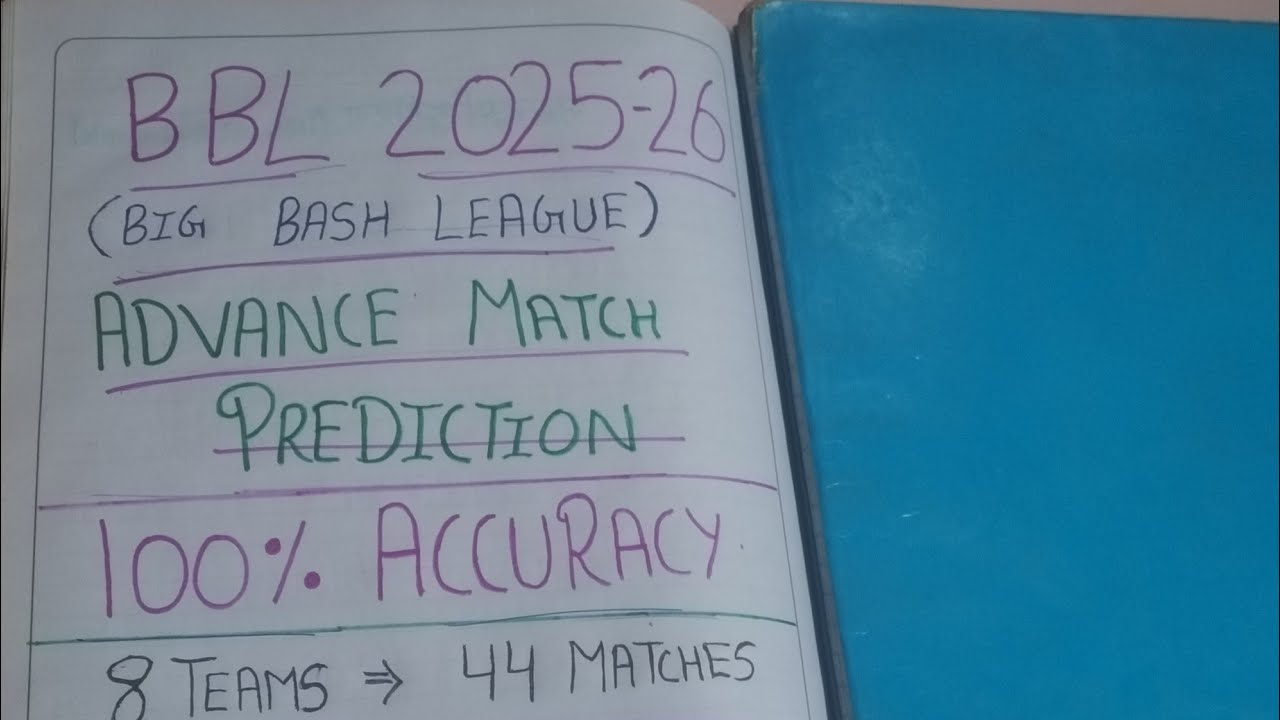 BBL 2025-26
(BIG BASH LEAGUE)
ADVANCE MATCH
PREDICTION
100% ACCURACY
8 TEAMS ⇒ 44 MATCHES